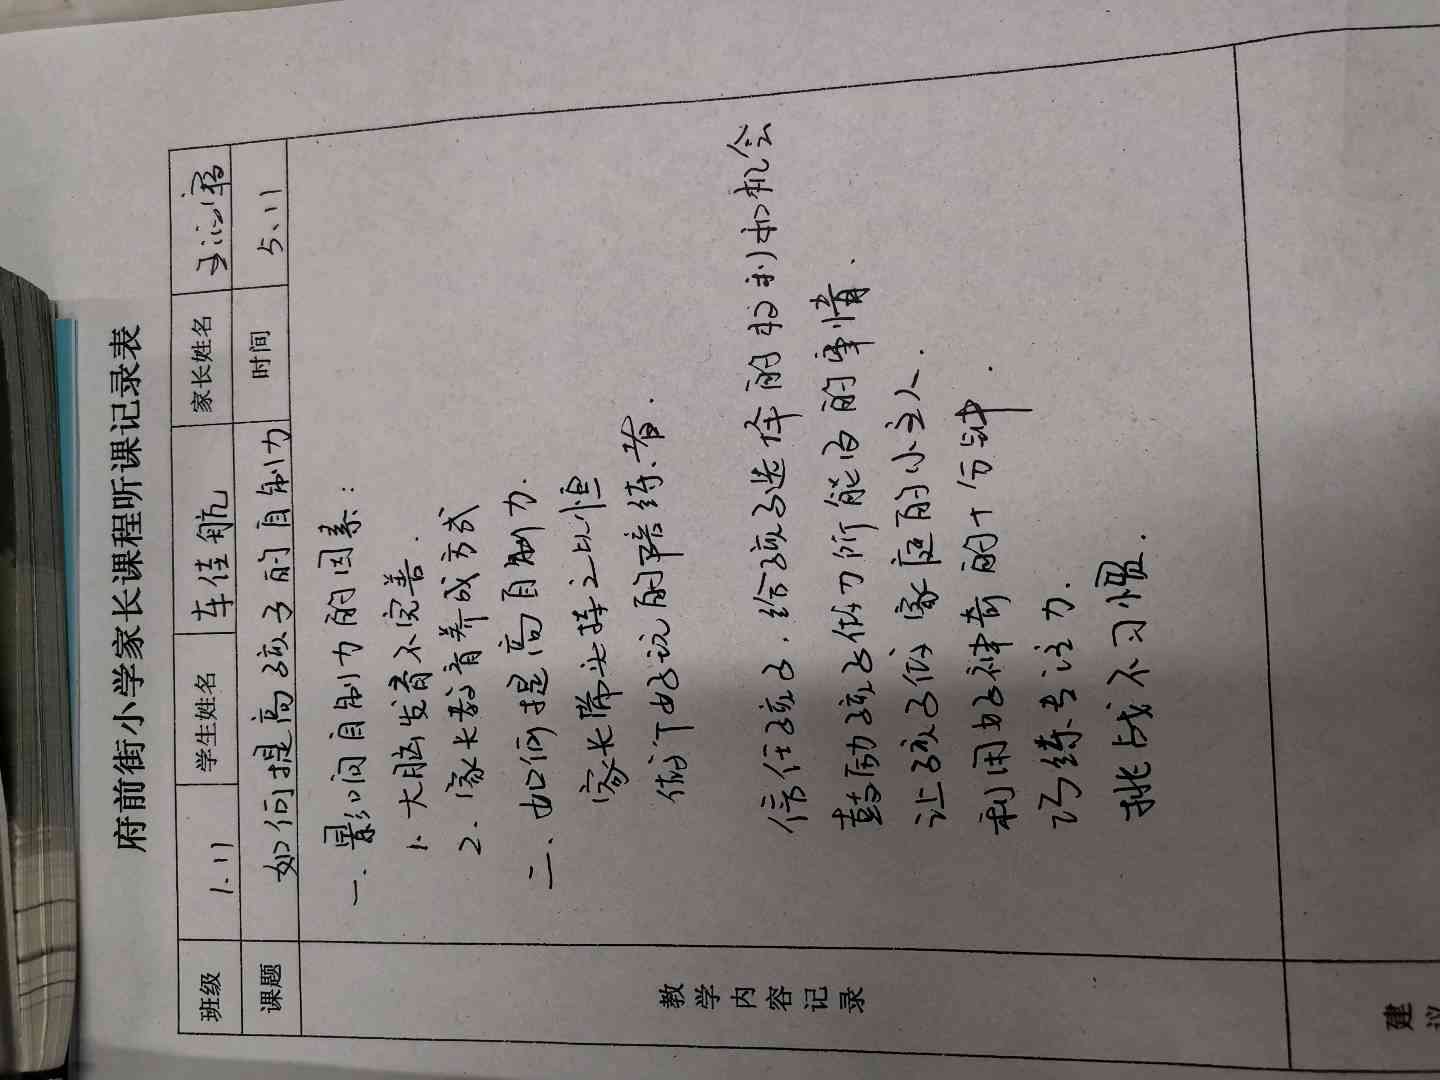 府前街小学家长课程听课记录表
班级 1.11 学生姓名 车佳航 家长姓名
课题 如何提高孩子的自制力 时间 5.11
教学内容记录
一.影响自制力的因素:
1.大脑发育不完善.
2.家长教育养成方式
二、如何提高自制力.
家长带头持之以恒
做个好玩的陪练者.
信任孩子.给孩子选择的权利和机会
鼓励孩子做力所能及的事情.
让孩子做家庭的小主人.
利用好神奇的十分钟.
巧练专注力.
挑战不习惯.
建议